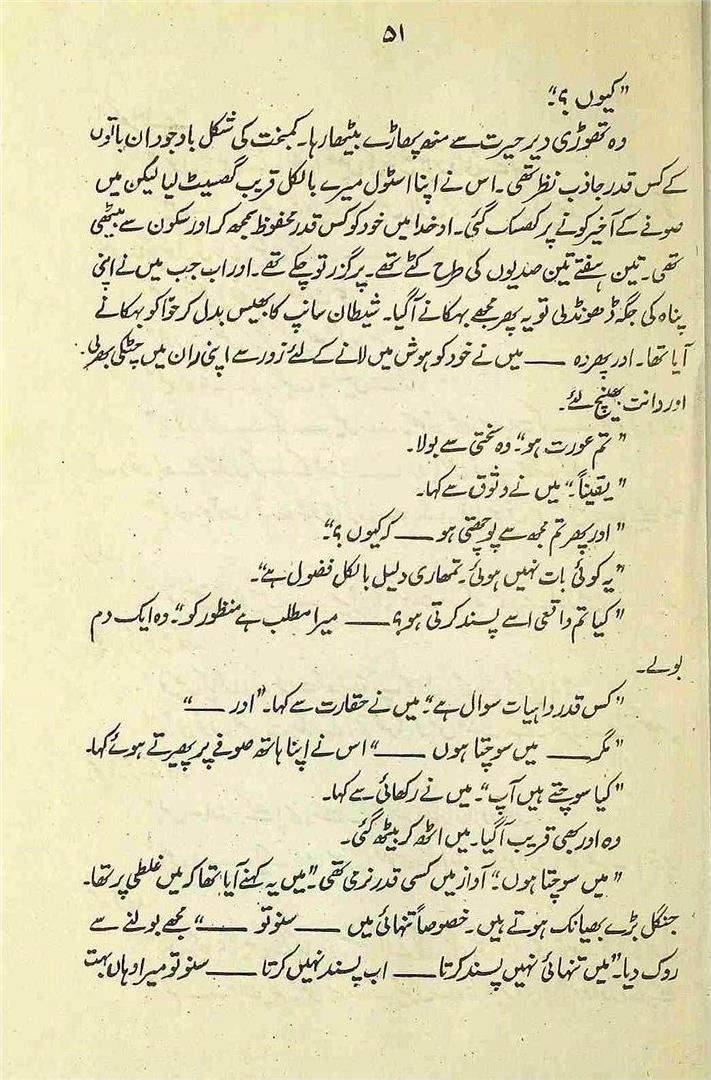 ۵۱
"کیوں ؟"۔
وہ تھوڑی دیر حیرت سے منھ پھاڑے بیٹھا رہا۔ کمبخت کی شکل باوجود ان باتوں
کے کس قدر جاذب نظر تھی۔ اس نے اپنا اسٹول میرے بالکل قریب گھسیٹ لیا لیکن میں
صوفے کے آخیر کونے پر کھسک گئی۔ اوخدا میں خود کو کس قدر محفوظ سمجھ کر اور سکون سے بیٹھی
تھی۔ تین ہفتے تین صدیوں کی طرح کٹے تھے۔ پر گزر تو چکے تھے۔ اور اب جب میں نے اپنی
پناہ کی جگہ ڈھونڈ لی تو یہ پھر مجھے بہکانے آگیا۔ شیطان سانپ کا بھیس بدل کر حوّا کو بہکانے
آیا تھا۔ اور پھر وہ —— میں نے خود کو ہوش میں لانے کے لئے زور سے اپنی ران میں چٹکی بھر لی
اور دانت بھینچ لئے۔
"تم عورت ہو"۔ وہ سختی سے بولا۔
"یقیناً"۔ میں نے وثوق سے کہا۔
"اور پھر تم مجھ سے پوچھتی ہو —— کہ کیوں ؟"۔
"یہ کوئی بات نہیں ہوئی۔ تمھاری دلیل بالکل فضول ہے"۔
"کیا تم واقعی اسے پسند کرتی ہو؟ —— میرا مطلب ہے منظور کو"۔ وہ ایک دم
بولے۔
"کس قدر واہیات سوال ہے"۔ میں نے حقارت سے کہا۔ "اور ——"
"مگر —— میں سوچتا ہوں ——" اس نے اپنا ہاتھ صوفے پر پھیرتے ہوئے کہا۔
"کیا سوچتے ہیں آپ"۔ میں نے رکھائی سے کہا۔
وہ اور بھی قریب آگیا۔ میں اٹھ کر بیٹھ گئی۔
"میں سوچتا ہوں"۔ آواز میں کسی قدر نرمی تھی۔ "میں یہ کہنے آیا تھا کہ میں غلطی پر تھا۔
جنگل بڑے بھیانک ہوتے ہیں۔ خصوصاً تنہائی میں —— سنو تو ——" مجھے بولنے سے
روک دیا۔ "میں تنہائی نہیں پسند کرتا —— اب پسند نہیں کرتا —— سنو تو میرا وہاں بہت